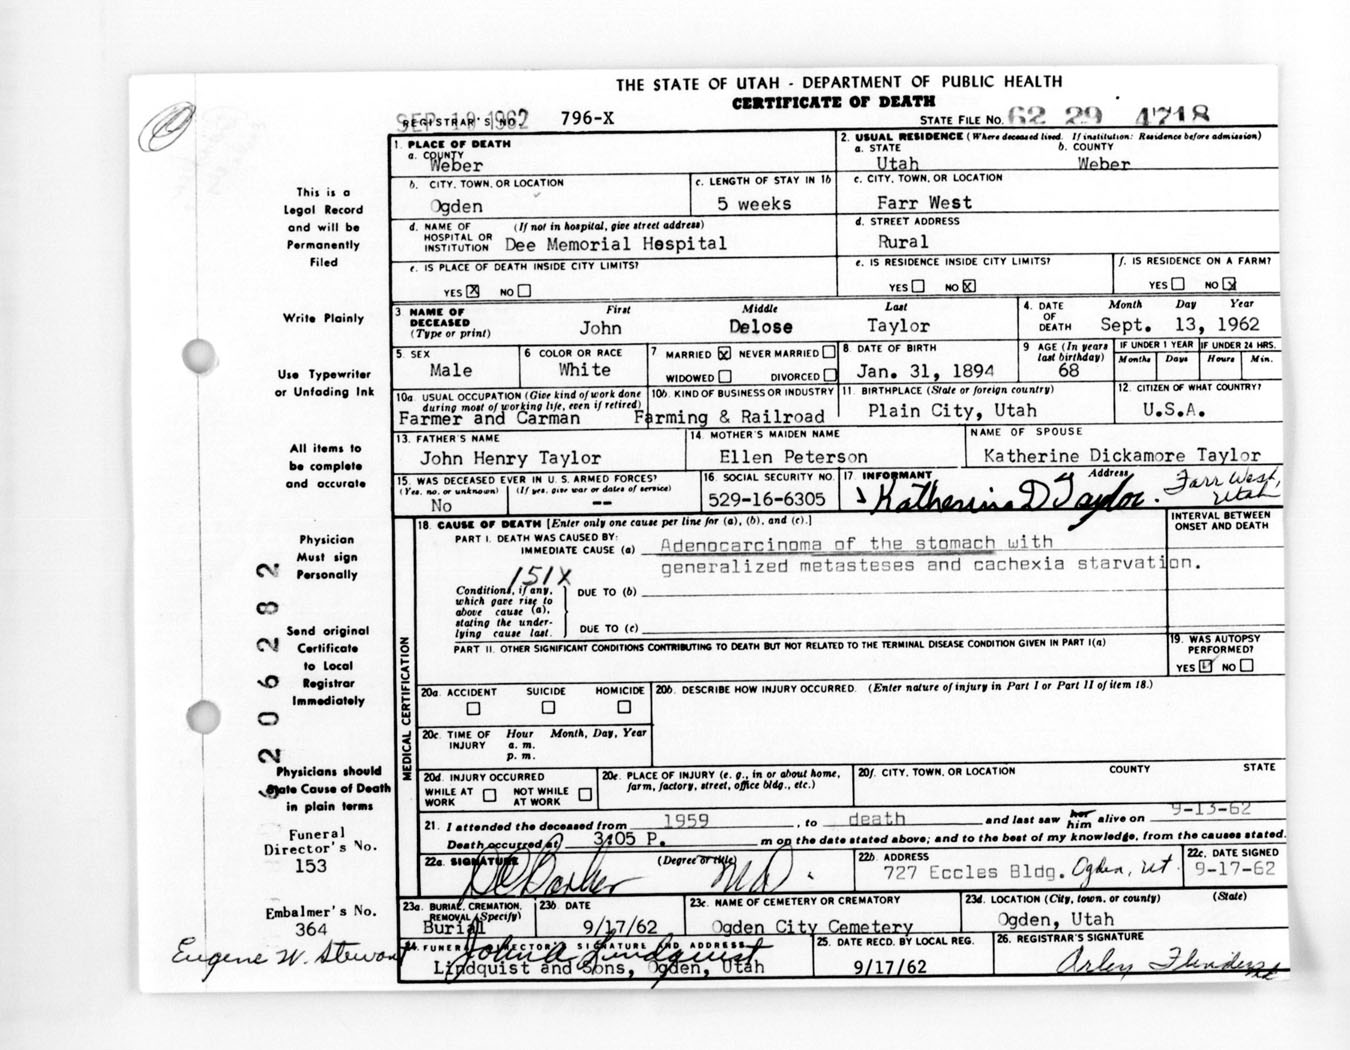 THE STATE OF UTAH - DEPARTMENT OF PUBLIC HEALTH
CERTIFICATE OF DEATH
SEP 18 1962 REGISTRAR'S NO. 796-X STATE FILE NO. 62 29 4718
1. PLACE OF DEATH
a. COUNTY
Weber
2. USUAL RESIDENCE (Where deceased lived. If institution: Residence before admission)
a. STATE b. COUNTY
Utah Weber
b. CITY, TOWN, OR LOCATION
Ogden
c. LENGTH OF STAY IN 1b
5 weeks
c. CITY, TOWN, OR LOCATION
Farr West
d. NAME OF HOSPITAL OR INSTITUTION (If not in hospital, give street address)
Dee Memorial Hospital
d. STREET ADDRESS
Rural
e. IS PLACE OF DEATH INSIDE CITY LIMITS?
YES X NO
e. IS RESIDENCE INSIDE CITY LIMITS?
YES NO X
f. IS RESIDENCE ON A FARM?
YES NO X
3 NAME OF DECEASED (Type or print)
First Middle Last
John Delose Taylor
4. DATE OF DEATH Month Day Year
Sept. 13, 1962
5. SEX
Male
6 COLOR OR RACE
White
7 MARRIED X NEVER MARRIED
WIDOWED DIVORCED
8. DATE OF BIRTH
Jan. 31, 1894
9 AGE (In years last birthday)
68
IF UNDER 1 YEAR IF UNDER 24 HRS.
Months Days Hours Min.
10a. USUAL OCCUPATION (Give kind of work done during most of working life, even if retired)
Farmer and Carman
10b. KIND OF BUSINESS OR INDUSTRY
Farming & Railroad
11. BIRTHPLACE (State or foreign country)
Plain City, Utah
12. CITIZEN OF WHAT COUNTRY?
U.S.A.
13. FATHER'S NAME
John Henry Taylor
14. MOTHER'S MAIDEN NAME
Ellen Peterson
NAME OF SPOUSE
Katherine Dickamore Taylor
15. WAS DECEASED EVER IN U.S. ARMED FORCES?
(Yes, no, or unknown) (If yes, give war or dates of service)
No --
16. SOCIAL SECURITY NO.
529-16-6305
17. INFORMANT Address
Katherine D Taylor. Farr West, Utah
MEDICAL CERTIFICATION
18. CAUSE OF DEATH [Enter only one cause per line for (a), (b), and (c).]
INTERVAL BETWEEN ONSET AND DEATH
PART I. DEATH WAS CAUSED BY:
IMMEDIATE CAUSE (a) Adenocarcinoma of the stomach with
generalized metasteses and cachexia starvation.
151X
Conditions, if any, which gave rise to above cause (a), stating the underlying cause last.
DUE TO (b)
DUE TO (c)
PART II. OTHER SIGNIFICANT CONDITIONS CONTRIBUTING TO DEATH BUT NOT RELATED TO THE TERMINAL DISEASE CONDITION GIVEN IN PART I(a)
19. WAS AUTOPSY PERFORMED?
YES NO
20a. ACCIDENT SUICIDE HOMICIDE
20b. DESCRIBE HOW INJURY OCCURRED. (Enter nature of injury in Part I or Part II of item 18.)
20c. TIME OF INJURY Hour Month, Day, Year
a. m.
p. m.
20d. INJURY OCCURRED
WHILE AT WORK NOT WHILE AT WORK
20e. PLACE OF INJURY (e. g., in or about home, farm, factory, street, office bldg., etc.)
20f. CITY, TOWN, OR LOCATION COUNTY STATE
21. I attended the deceased from 1959, to death and last saw her him alive on 9-13-62
Death occurred at 3:05 P. m on the date stated above; and to the best of my knowledge, from the causes stated.
22a. SIGNATURE (Degree or title)
Barker MD.
22b. ADDRESS
727 Eccles Bldg. Ogden, Ut
22c. DATE SIGNED
9-17-62
23a. BURIAL, CREMATION, REMOVAL (Specify)
Burial
23b. DATE
9/17/62
23c. NAME OF CEMETERY OR CREMATORY
Ogden City Cemetery
23d. LOCATION (City, town, or county) (State)
Ogden, Utah
24. FUNERAL DIRECTOR'S SIGNATURE AND ADDRESS
John A Lindquist
Lindquist and Sons, Ogden, Utah
25. DATE RECD. BY LOCAL REG.
9/17/62
26. REGISTRAR'S SIGNATURE
Arley
This is a
Legal Record
and will be
Permanently
Filed
Write Plainly
Use Typewriter
or Unfading Ink
All items to
be complete
and accurate
Physician
Must sign
Personally
Send original
Certificate
to Local
Registrar
Immediately
Physicians should
State Cause of Death
in plain terms
Funeral
Director's No.
153
Embalmer's No.
364
Eugene W. Stewart
6206282